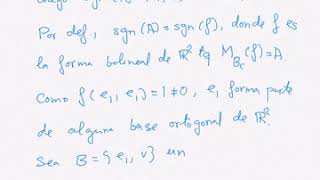 Por def., sgn(A)=sgn(f), donde f es
la forma bolineal de ℝ² tq M_{B_c}(f)=A.
Como f(e₁,e₁)=1≠0, e₁ forma parte
de alguna base ortogonal de ℝ².
Sea B={e₁,v} un